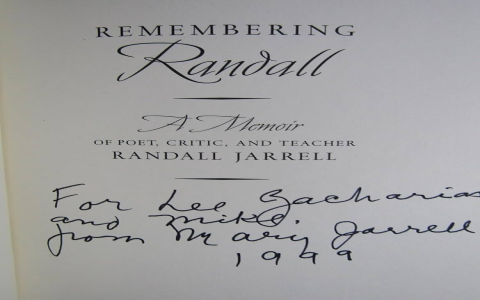 REMEMBERING
Randall
A Memoir
OF POET, CRITIC, AND TEACHER
RANDALL JARRELL
For Lee Zacharias
and Mike.
from Mary Jarrell
1999